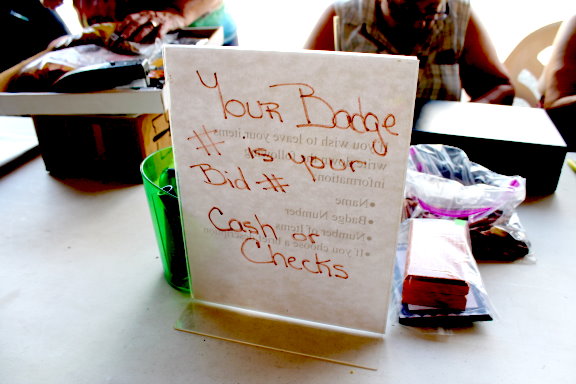 Your Badge
# is your
Bid #
Cash or
Checks
If you wish to leave your items
write down the following
information
•Name
•Badge Number
•Number of Items
•If you choose a